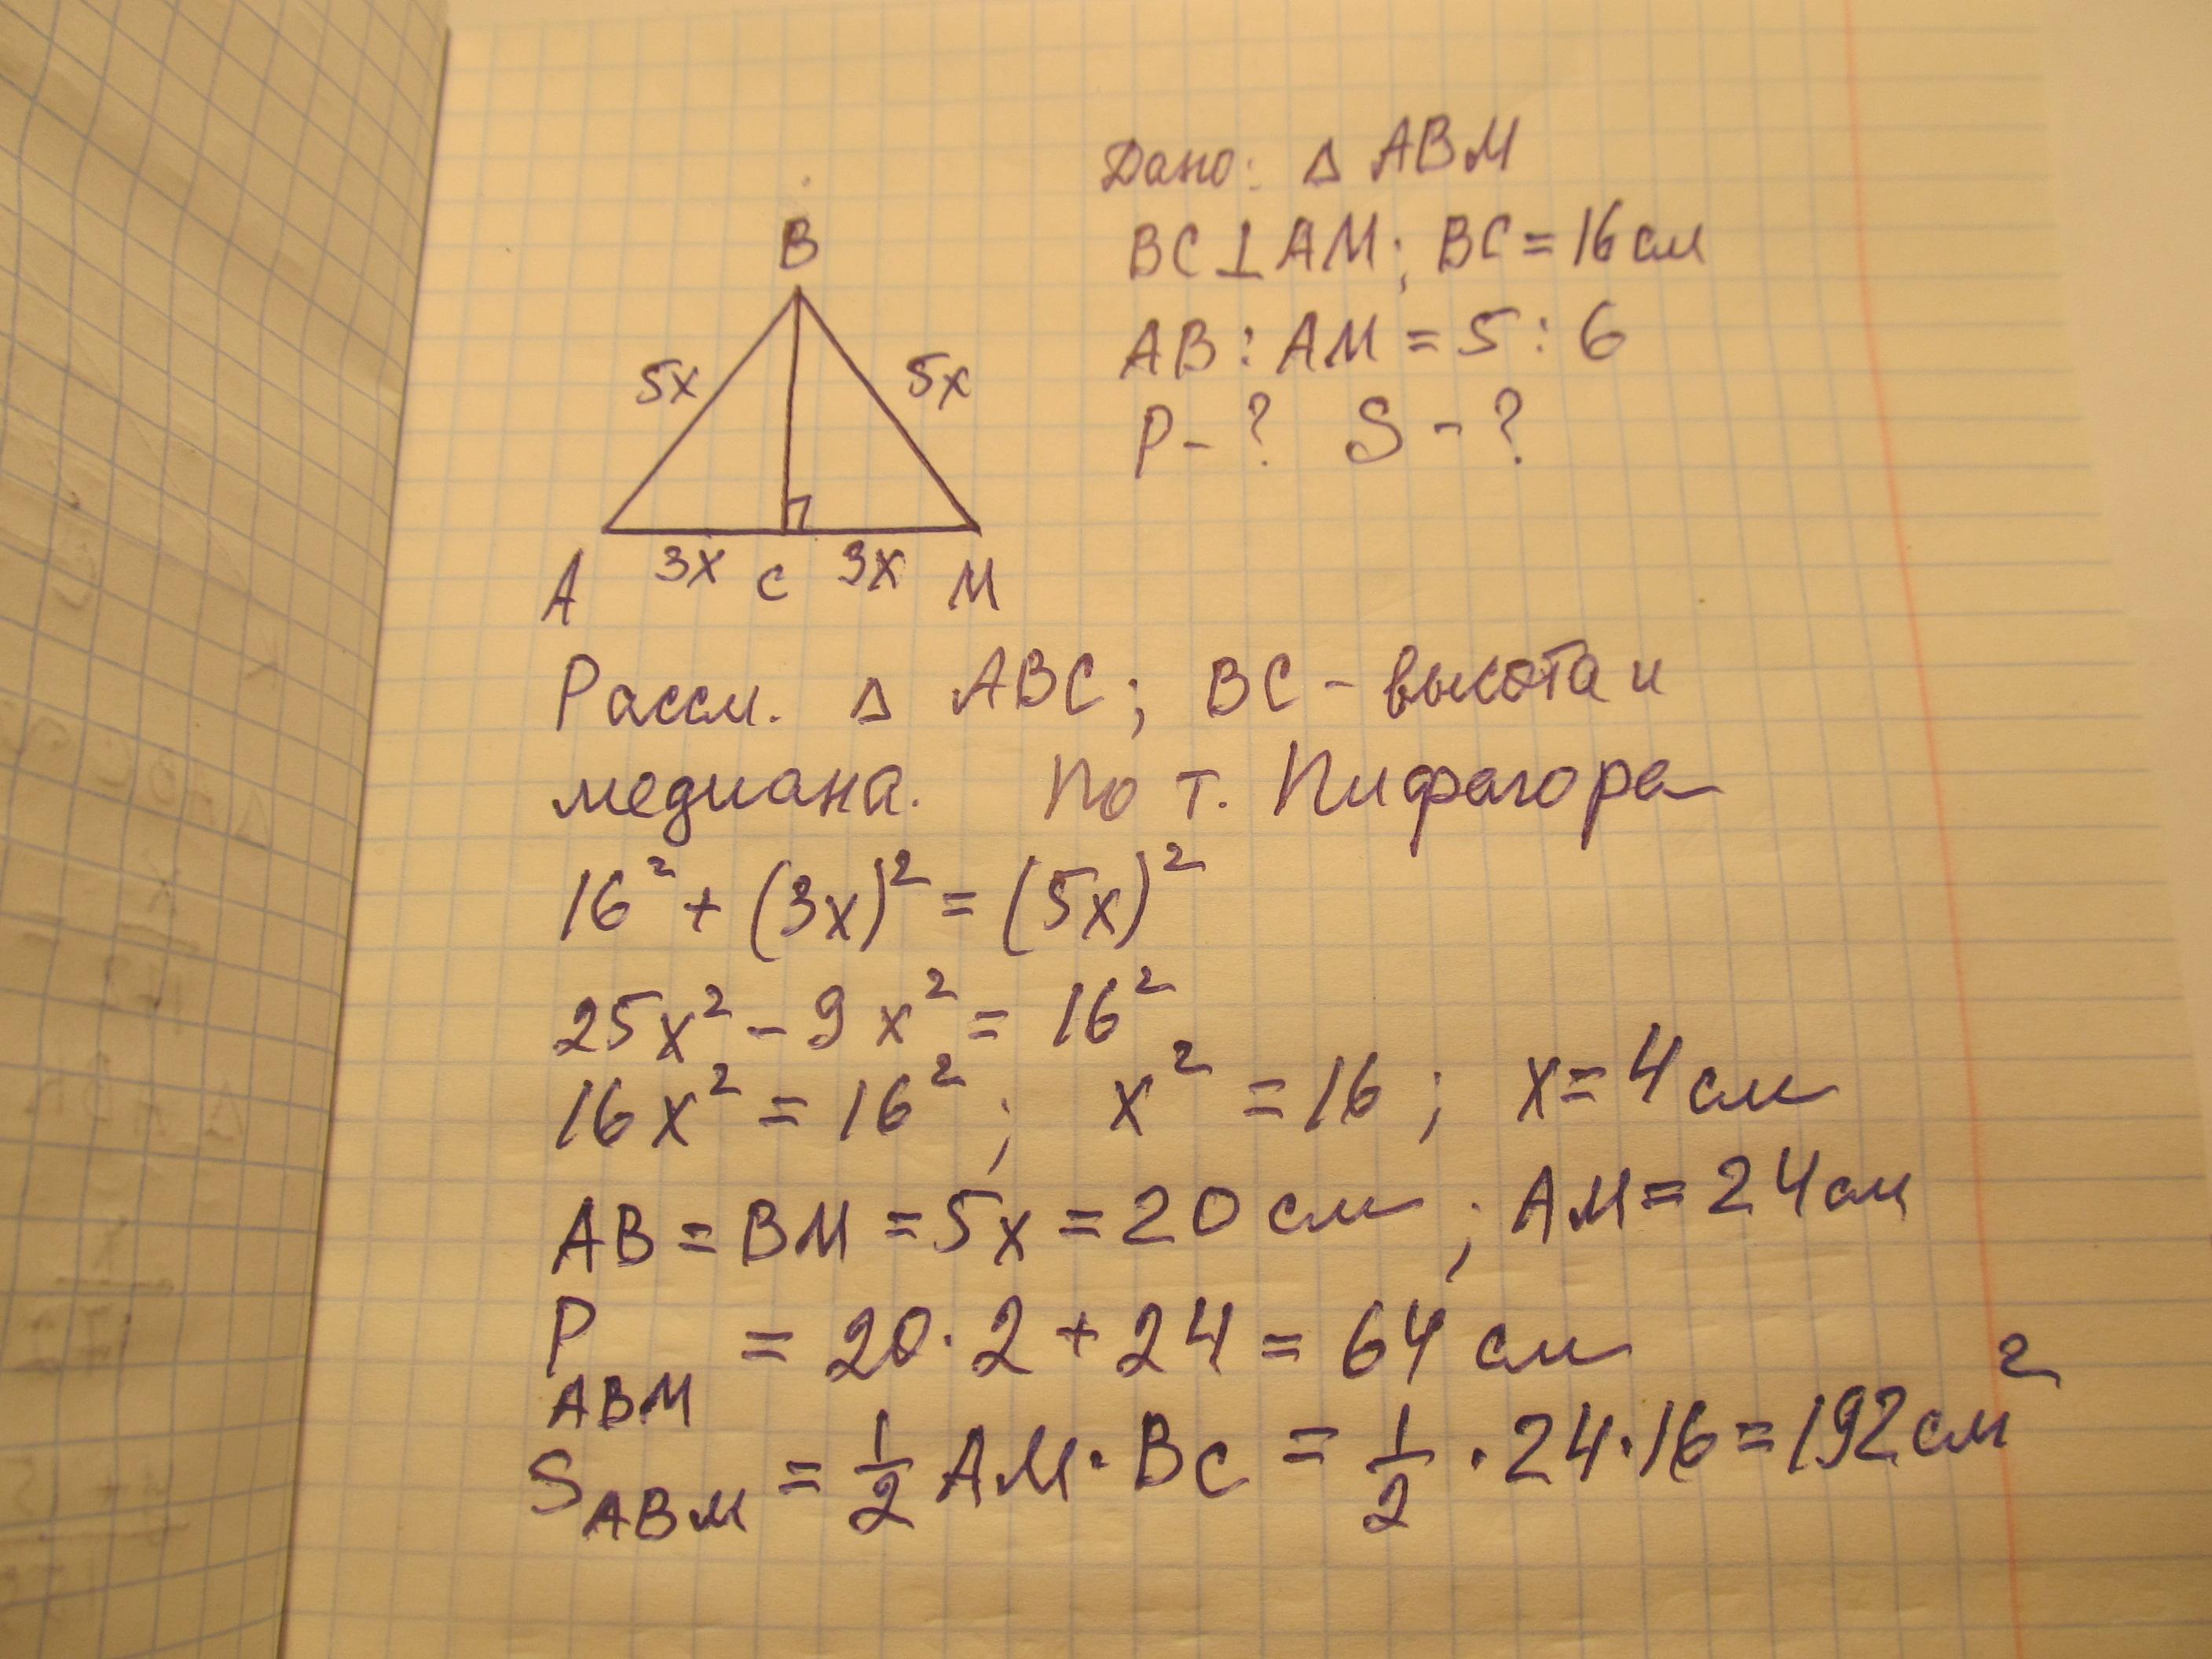 Дано: Δ ABM
BC⊥AM; BC=16см
AB:AM=5:6
P-? S-?
B
5x 5x
3x 3x
A C M
Рассм. Δ ABC; BC - высота и
медиана. По т. Пифагора
16² + (3x)² = (5x)²
25x² - 9x² = 16²
16x² = 16²; x² = 16; x = 4 см
AB = BM = 5x = 20 см; AM = 24см
P ABM = 20·2+24 = 64 см
S ABM = 1/2 AM·BC = 1/2 · 24·16 = 192 см²